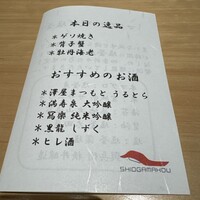 本日の逸品
＊ゲソ焼き
＊背子蟹
＊牡丹海老
おすすめのお酒
＊澤屋まつもと うるとら
＊満寿泉 大吟醸
＊冩樂 純米吟醸
＊黒龍 しずく
＊ヒレ酒
SHIOGAMAKOU